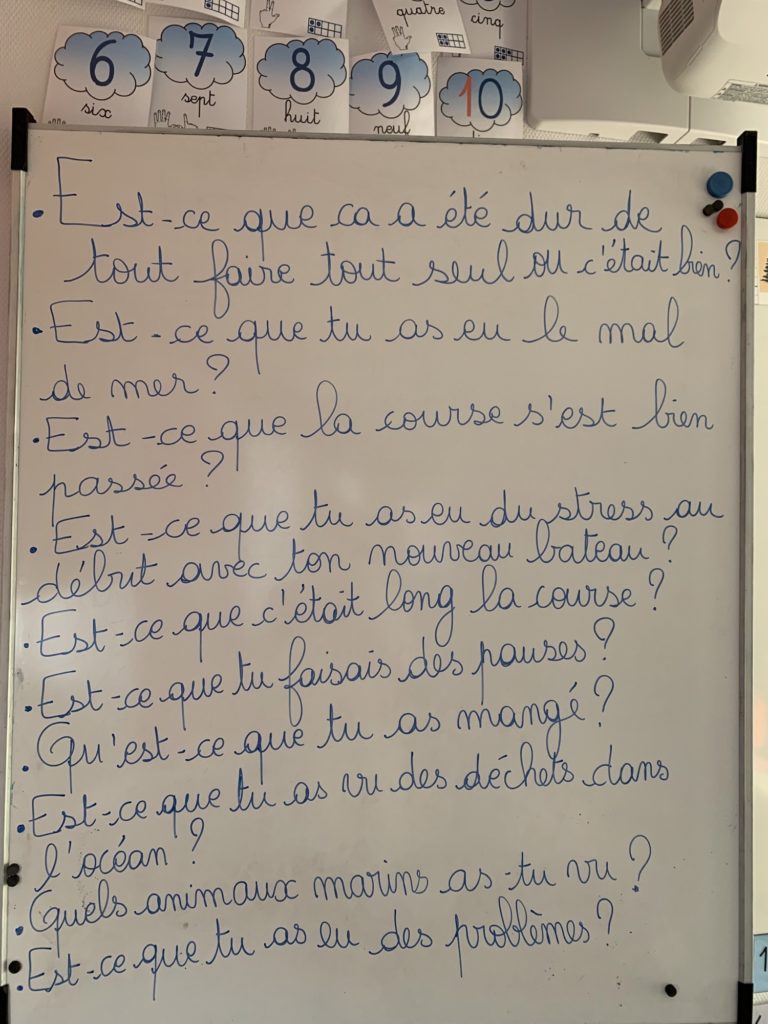 quatre
cinq
6
7
8
9
10
six
sept
huit
neuf
• Est-ce que ca a été dur de
tout faire tout seul ou c'était bien ?
• Est-ce que tu as eu le mal
de mer ?
• Est-ce que la course s'est bien
passée ?
• Est-ce que tu as eu du stress au
début avec ton nouveau bateau ?
• Est-ce que c'était long la course ?
• Est-ce que tu faisais des pauses ?
• Qu'est-ce que tu as mangé ?
• Est-ce que tu as vu des déchets dans
l'océan ?
• Quels animaux marins as-tu vu ?
• Est-ce que tu as eu des problèmes ?